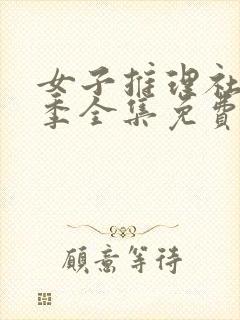 女子推理社
季全集免费
愿意等待